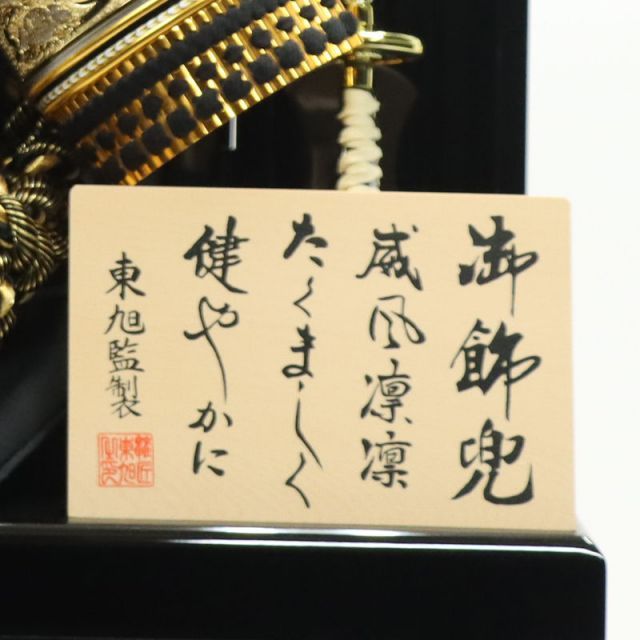 御飾兜
威風凛凛
たくましく
健やかに
東旭監製